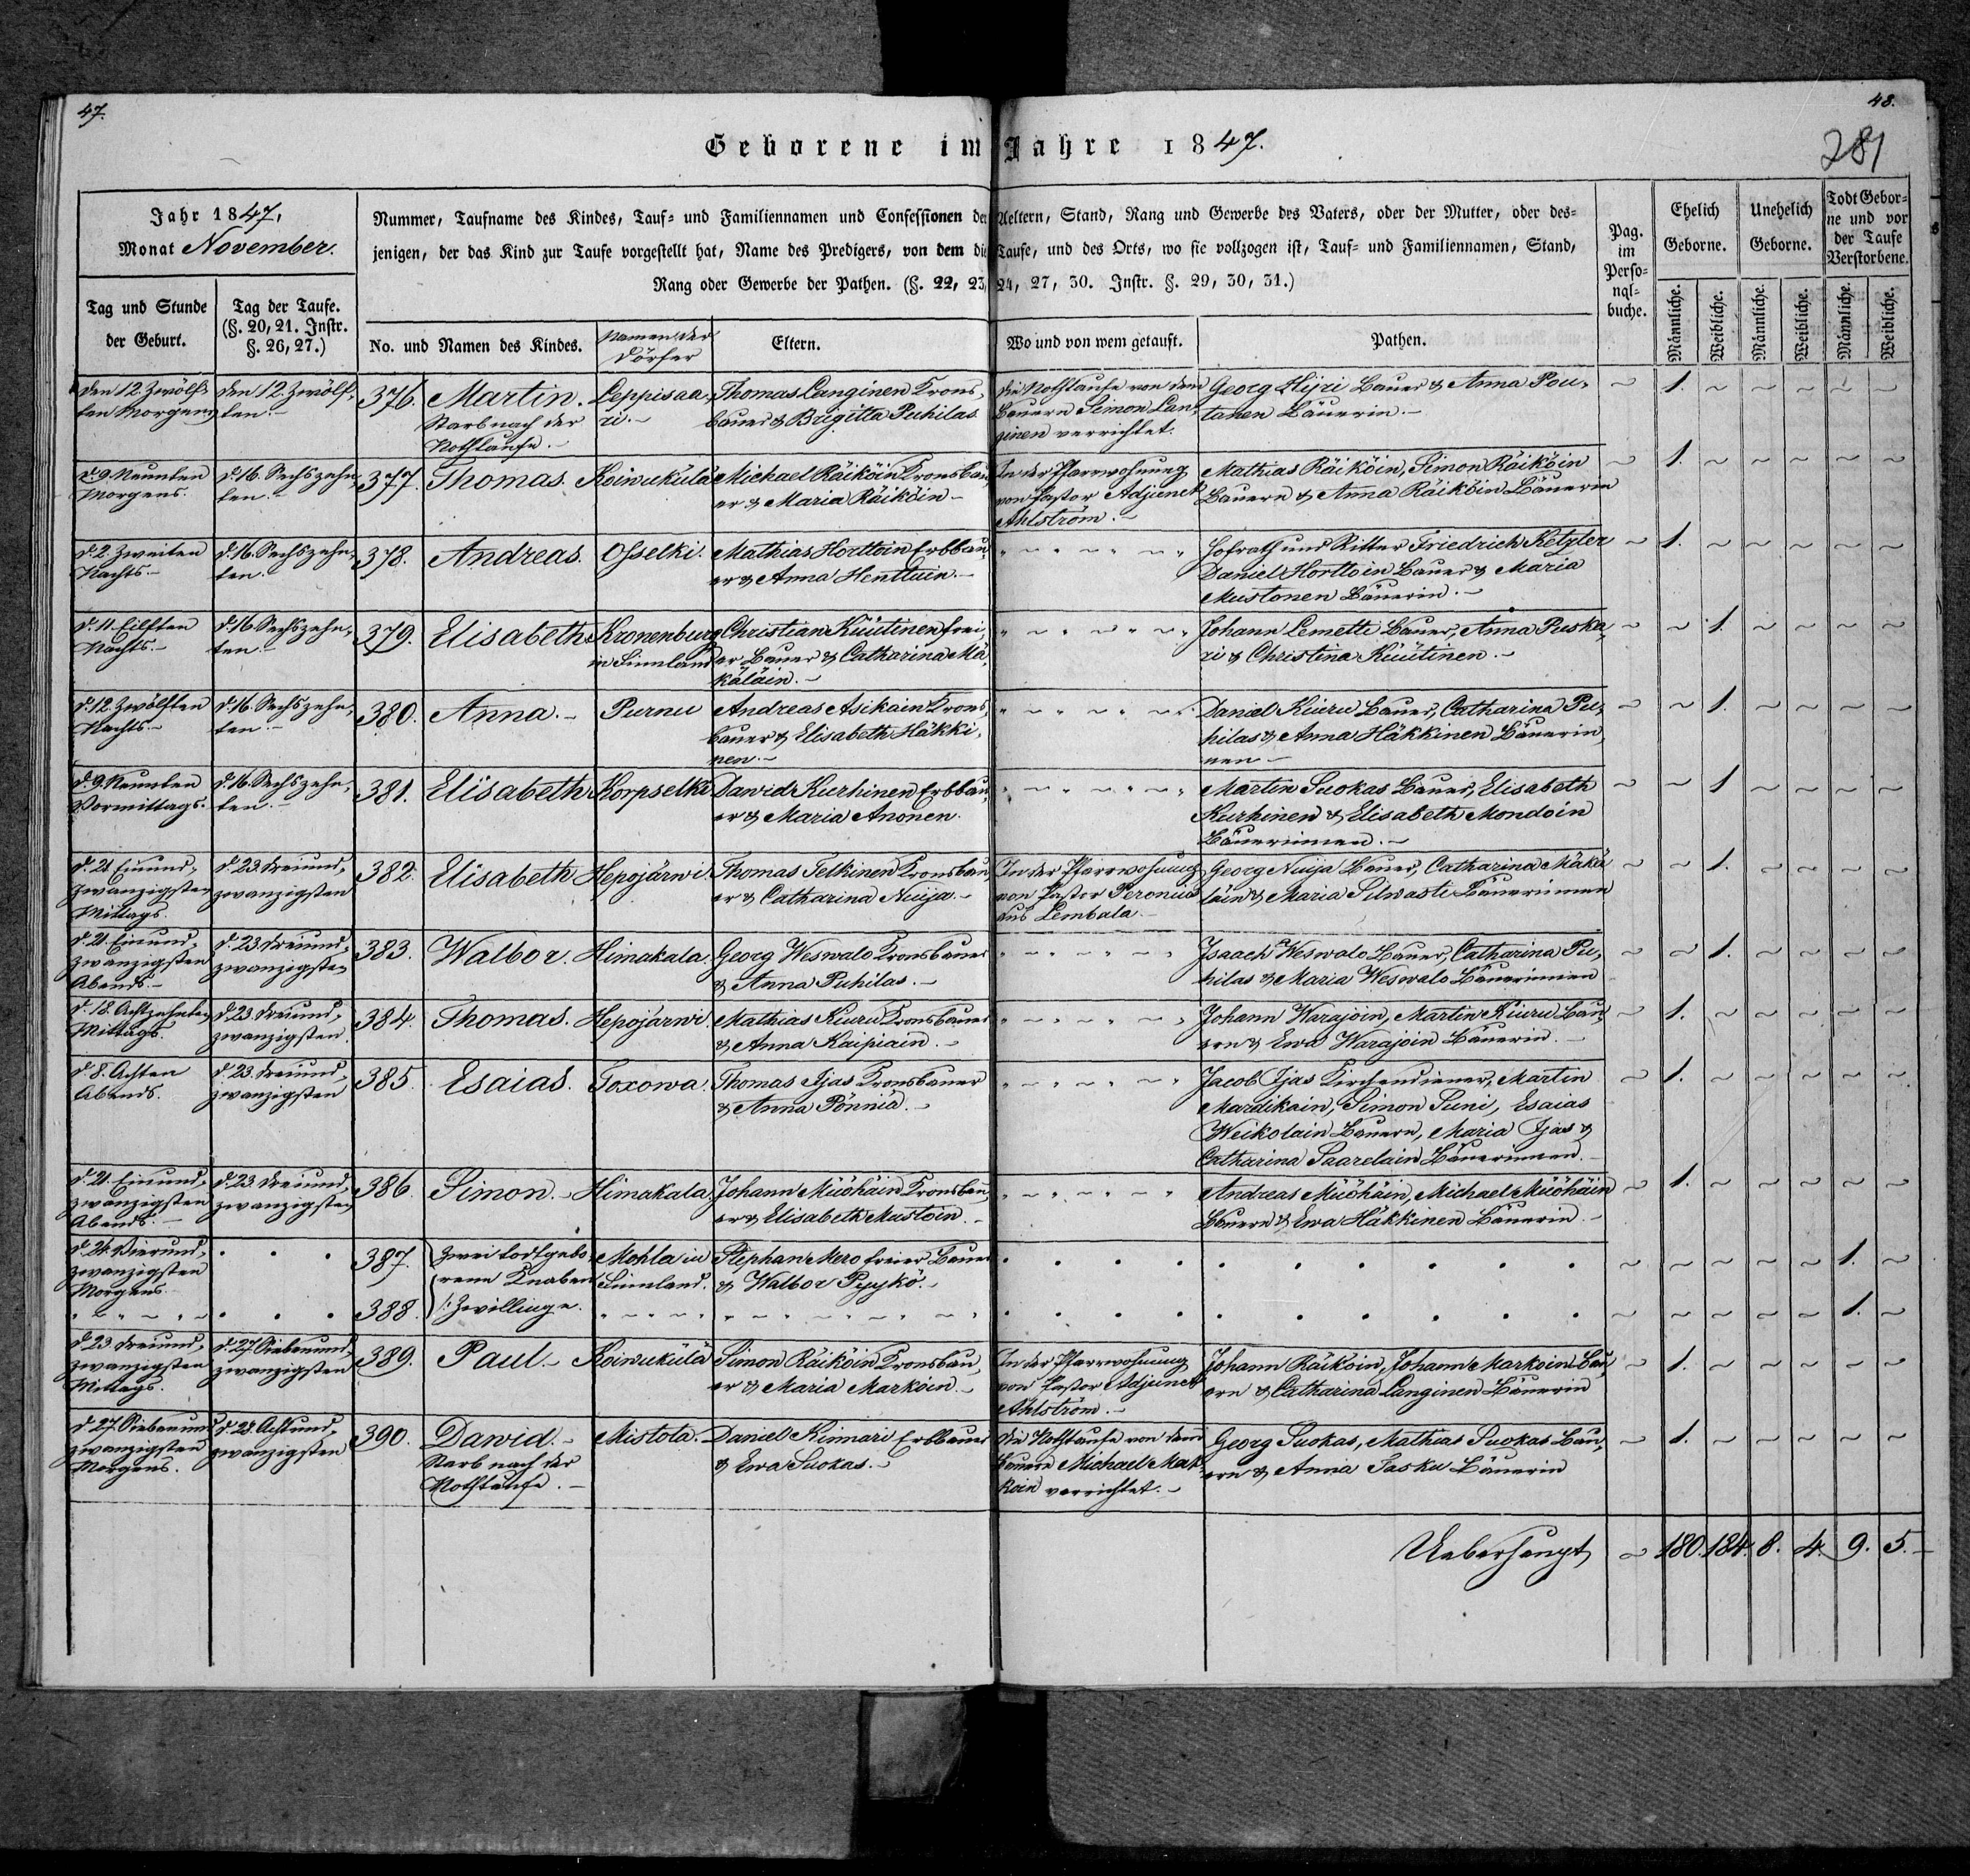 47.
48.
281
Geborene im Jahre 1847.
Jahr 1847,
Monat November.
Nummer, Taufname des Kindes, Tauf= und Familiennamen und Confessionen der Aeltern, Stand, Rang und Gewerbe des Vaters, oder der Mutter, oder des=
jenigen, der das Kind zur Taufe vorgestellt hat, Name des Predigers, von dem die Taufe, und des Orts, wo sie vollzogen ist, Tauf= und Familiennamen, Stand,
Rang oder Gewerbe der Pathen. (§. 22, 23, 24, 27, 30. Instr. §. 29, 30, 31.)
Pag.
im
Perso=
nal=
buche.
Ehelich
Geborne.
Unehelich
Geborne.
Todt Gebor=
ne und vor
der Taufe
Verstorbene.
Tag und Stunde
der Geburt.
Tag der Taufe.
(§. 20, 21. Instr.
§. 26, 27.)
No. und Namen des Kindes.
Namen der
Dörfer
Eltern.
Wo und von wem getauft.
Pathen.
Männliche.
Weibliche.
Männliche.
Weibliche.
Männliche.
Weibliche.
den 12. Zwölf=
ten Morgens
den 12. Zwölf=
ten.
376. Martin.
Starb nach der
Nothtaufe.
Leppisaa=
ri.
Thomas Langinen Krons=
bauer & Brigitta Puhilas
Die Nothtaufe von dem
Bauern Simon Lan=
ginen verrichtet.
Georg Hijri Bauer & Anna Pou=
tanen Bäuerin.
~ 1. ~ ~ ~ ~ ~
d. 9. Neunten
Morgens.
d. 16. Sechszehn=
ten.
377. Thomas.
Koiwukülä
Michael Räiköin Kronsbau=
er & Maria Räiköin
In der Pfarrwohnung
von Pastor Adjunct
Ahlström.
Mathias Räiköin, Simon Räiköin
Bauern & Anna Räiköin Bäuerin
~ 1. ~ ~ ~ ~ ~
d. 2. Zweiten
Nachts.
d. 16. Sechszehn=
ten.
378. Andreas.
Osselki.
Mathias Horttoin Erbbau=
er & Anna Henttuin.
" ~ " ~ " ~ "
Hofrath und Ritter Friedrich Ketzler
Daniel Horttoin Bauer & Maria
Mustonen Bäuerin.
~ 1. ~ ~ ~ ~ ~
d. 11. Eilften
Nachts.
d. 16. Sechszehn=
ten.
379. Elisabeth
Kronenburg
in Finnland
Christian Küütinen frei=
er Bauer & Catharina Mä=
käläin.
" ~ " ~ " ~ "
Johann Lemetti Bauer, Anna Puska=
ri & Christina Küütinen.
~ ~ 1. ~ ~ ~ ~
d. 12. Zwölften
Nachts.
d. 16. Sechszehn=
ten.
380. Anna.
Purnu
Andreas Asikain Krons=
bauer & Elisabeth Häkki=
nen.
" ~ " ~ " ~ "
Daniel Kiuru Bauer, Catharina Pu=
hilas & Anna Häkkinen Bäuerin=
nen
~ ~ 1. ~ ~ ~ ~
d. 9. Neunten
Vormittags.
d. 16. Sechszehn=
ten.
381. Elisabeth
Korpselki
Dawid Kurhinen Erbbau=
er & Maria Anonen.
" ~ " ~ " ~ "
Martin Suokas Bauer, Elisabeth
Kurhinen & Elisabeth Mondoin
Bäuerinnen.
~ ~ 1 ~ ~ ~ ~
d. 21. Einund=
zwanzigsten
Mittags.
d. 23. Dreiund=
zwanzigsten
382. Elisabeth
Hepojärwi.
Thomas Telkinen Kronsbau=
er & Catharina Nuija.
In der Pfarrwohnung
von Pastor Peronius
aus Lembala.
Georg Nuija Bauer, Catharina Mäkä=
läin & Maria Silwasti Bäuerinnen
~ ~ 1. ~ ~ ~ ~
d. 21. Einund=
zwanzigsten
Abends.
d. 23. Dreiund=
zwanzigsten
383. Walbor.
Himakala.
Georg Weswalo Kronsbauer
& Anna Puhilas.
" ~ " ~ " ~ "
Isaach Weswalo Bauer, Catharina Pu=
hilas & Maria Weswalo Bäuerinnen
~ ~ 1. ~ ~ ~ ~
d. 18. Achtzehnten
Mittags.
d. 23. Dreiund=
zwanzigsten.
384. Thomas.
Hepojärwi.
Mathias Kiuru Kronsbauer
& Anna Kaipiain.
" ~ " ~ " ~ "
Johann Warajoin, Martin Kiuru Bau=
ern & Ewa Warajoin Bäuerin.
~ 1. ~ ~ ~ ~ ~
d. 8. Achten
Abends.
d. 23. Dreiund=
zwanzigsten
385. Esaias.
Toxowa.
Thomas Ijas Kronsbauer
& Anna Pönniä.
" ~ " ~ " ~ "
Jacob Ijas Kirchendiener, Martin
Mardikain, Simon Suni, Esaias
Weikolain Bauern, Maria Ijas &
Catharina Saarelain Bäuerinnen.
~ 1. ~ ~ ~ ~ ~
d. 21. Einund=
zwanzigsten
Abends.
d. 23. Dreiund=
zwanzigsten
386. Simon.
Himakala
Johann Müöhäin Kronsbau=
er & Elisabeth Mustoin.
" ~ " ~ " ~ "
Andreas Müöhäin, Michael Müöhäin
Bauern & Ewa Häkkinen Bäuerin.
~ 1. ~ ~ ~ ~ ~
d. 24. Vierund=
zwanzigsten
Morgens.
387. Zwei todtgebo=
rene Knaben
Mohla in
Finnland.
Stephan Mero freier Bauer
& Walbor Pyykö.
~ ~ ~ ~ ~ 1. ~
388. /: Zwillinge.
~ ~ ~ ~ ~ 1. ~
d. 23. Dreiund=
zwanzigsten
Mittags.
d. 27. Siebenund=
zwanzigsten
389. Paul.
Koiwukülä
Simon Räiköin Kronsbau=
er & Maria Marköin.
In der Pfarrwohnung
von Pastor Adjunct
Ahlström.
Johann Räiköin, Johann Markoin Bau=
ern & Catharina Langinen Bäuerin
~ 1. ~ ~ ~ ~ ~
d. 27. Siebenund
zwanzigsten
Morgens.
d. 28. Achtund=
zwanzigsten
390. Dawid.
Starb nach der
Nothtaufe.
Mistola.
Daniel Kinnari Erbbauer
& Ewa Suokas.
Die Nothtaufe von dem
Bauern Michael Mak=
koin verrichtet.
Georg Suokas, Mathias Suokas Bau=
ern & Anna Tasku Bäuerin
~ 1. ~ ~ ~ ~ ~
Ueberhaupt ~ 180. 184. 8. 4. 9. 5.